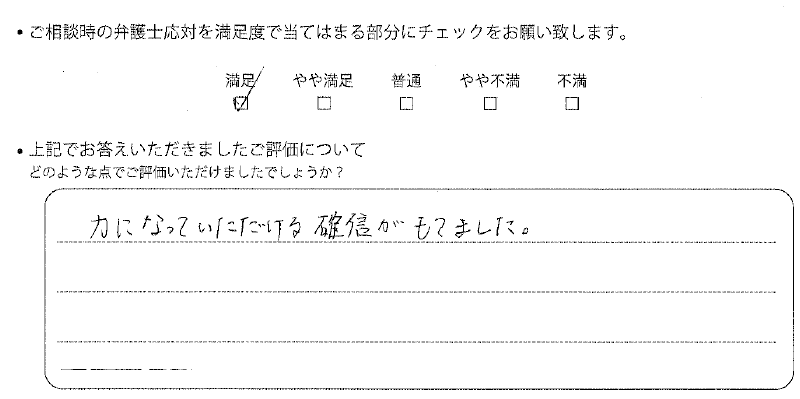 ・ご相談時の弁護士応対を満足度で当てはまる部分にチェックをお願い致します。
満足 やや満足 普通 やや不満 不満
☑ □ □ □ □
・上記でお答えいただきましたご評価について
どのような点でご評価いただけましたでしょうか？
力になっていただける確信がもてました。